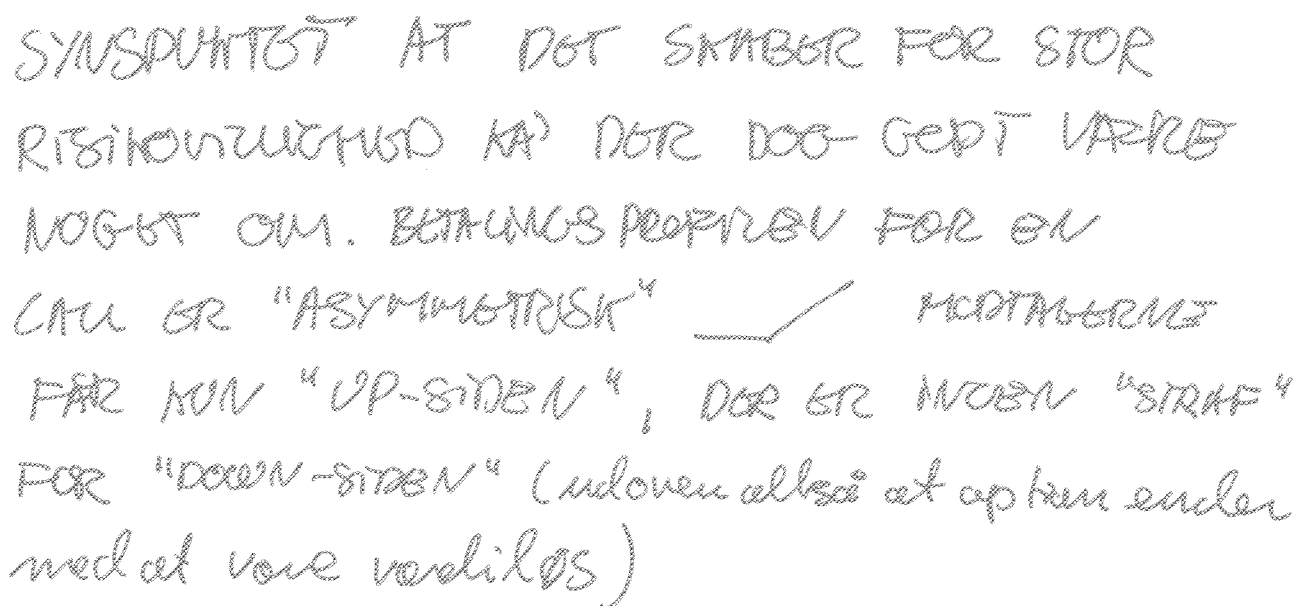 SYNSPUNKTET AT DET SKABER FOR STOR
RISIKOVILLIGHED KAN DER DOG GODT VÆRE
NOGET OM. BETALINGSPROFILEN FOR EN
CALL ER "ASYMMETRISK" MODTAGERNE
FÅR KUN "UP-SIDEN", DER ER INGEN "STRAF"
FOR "DOWN-SIDEN" (udover altså at option ender
med at være værdiløs)